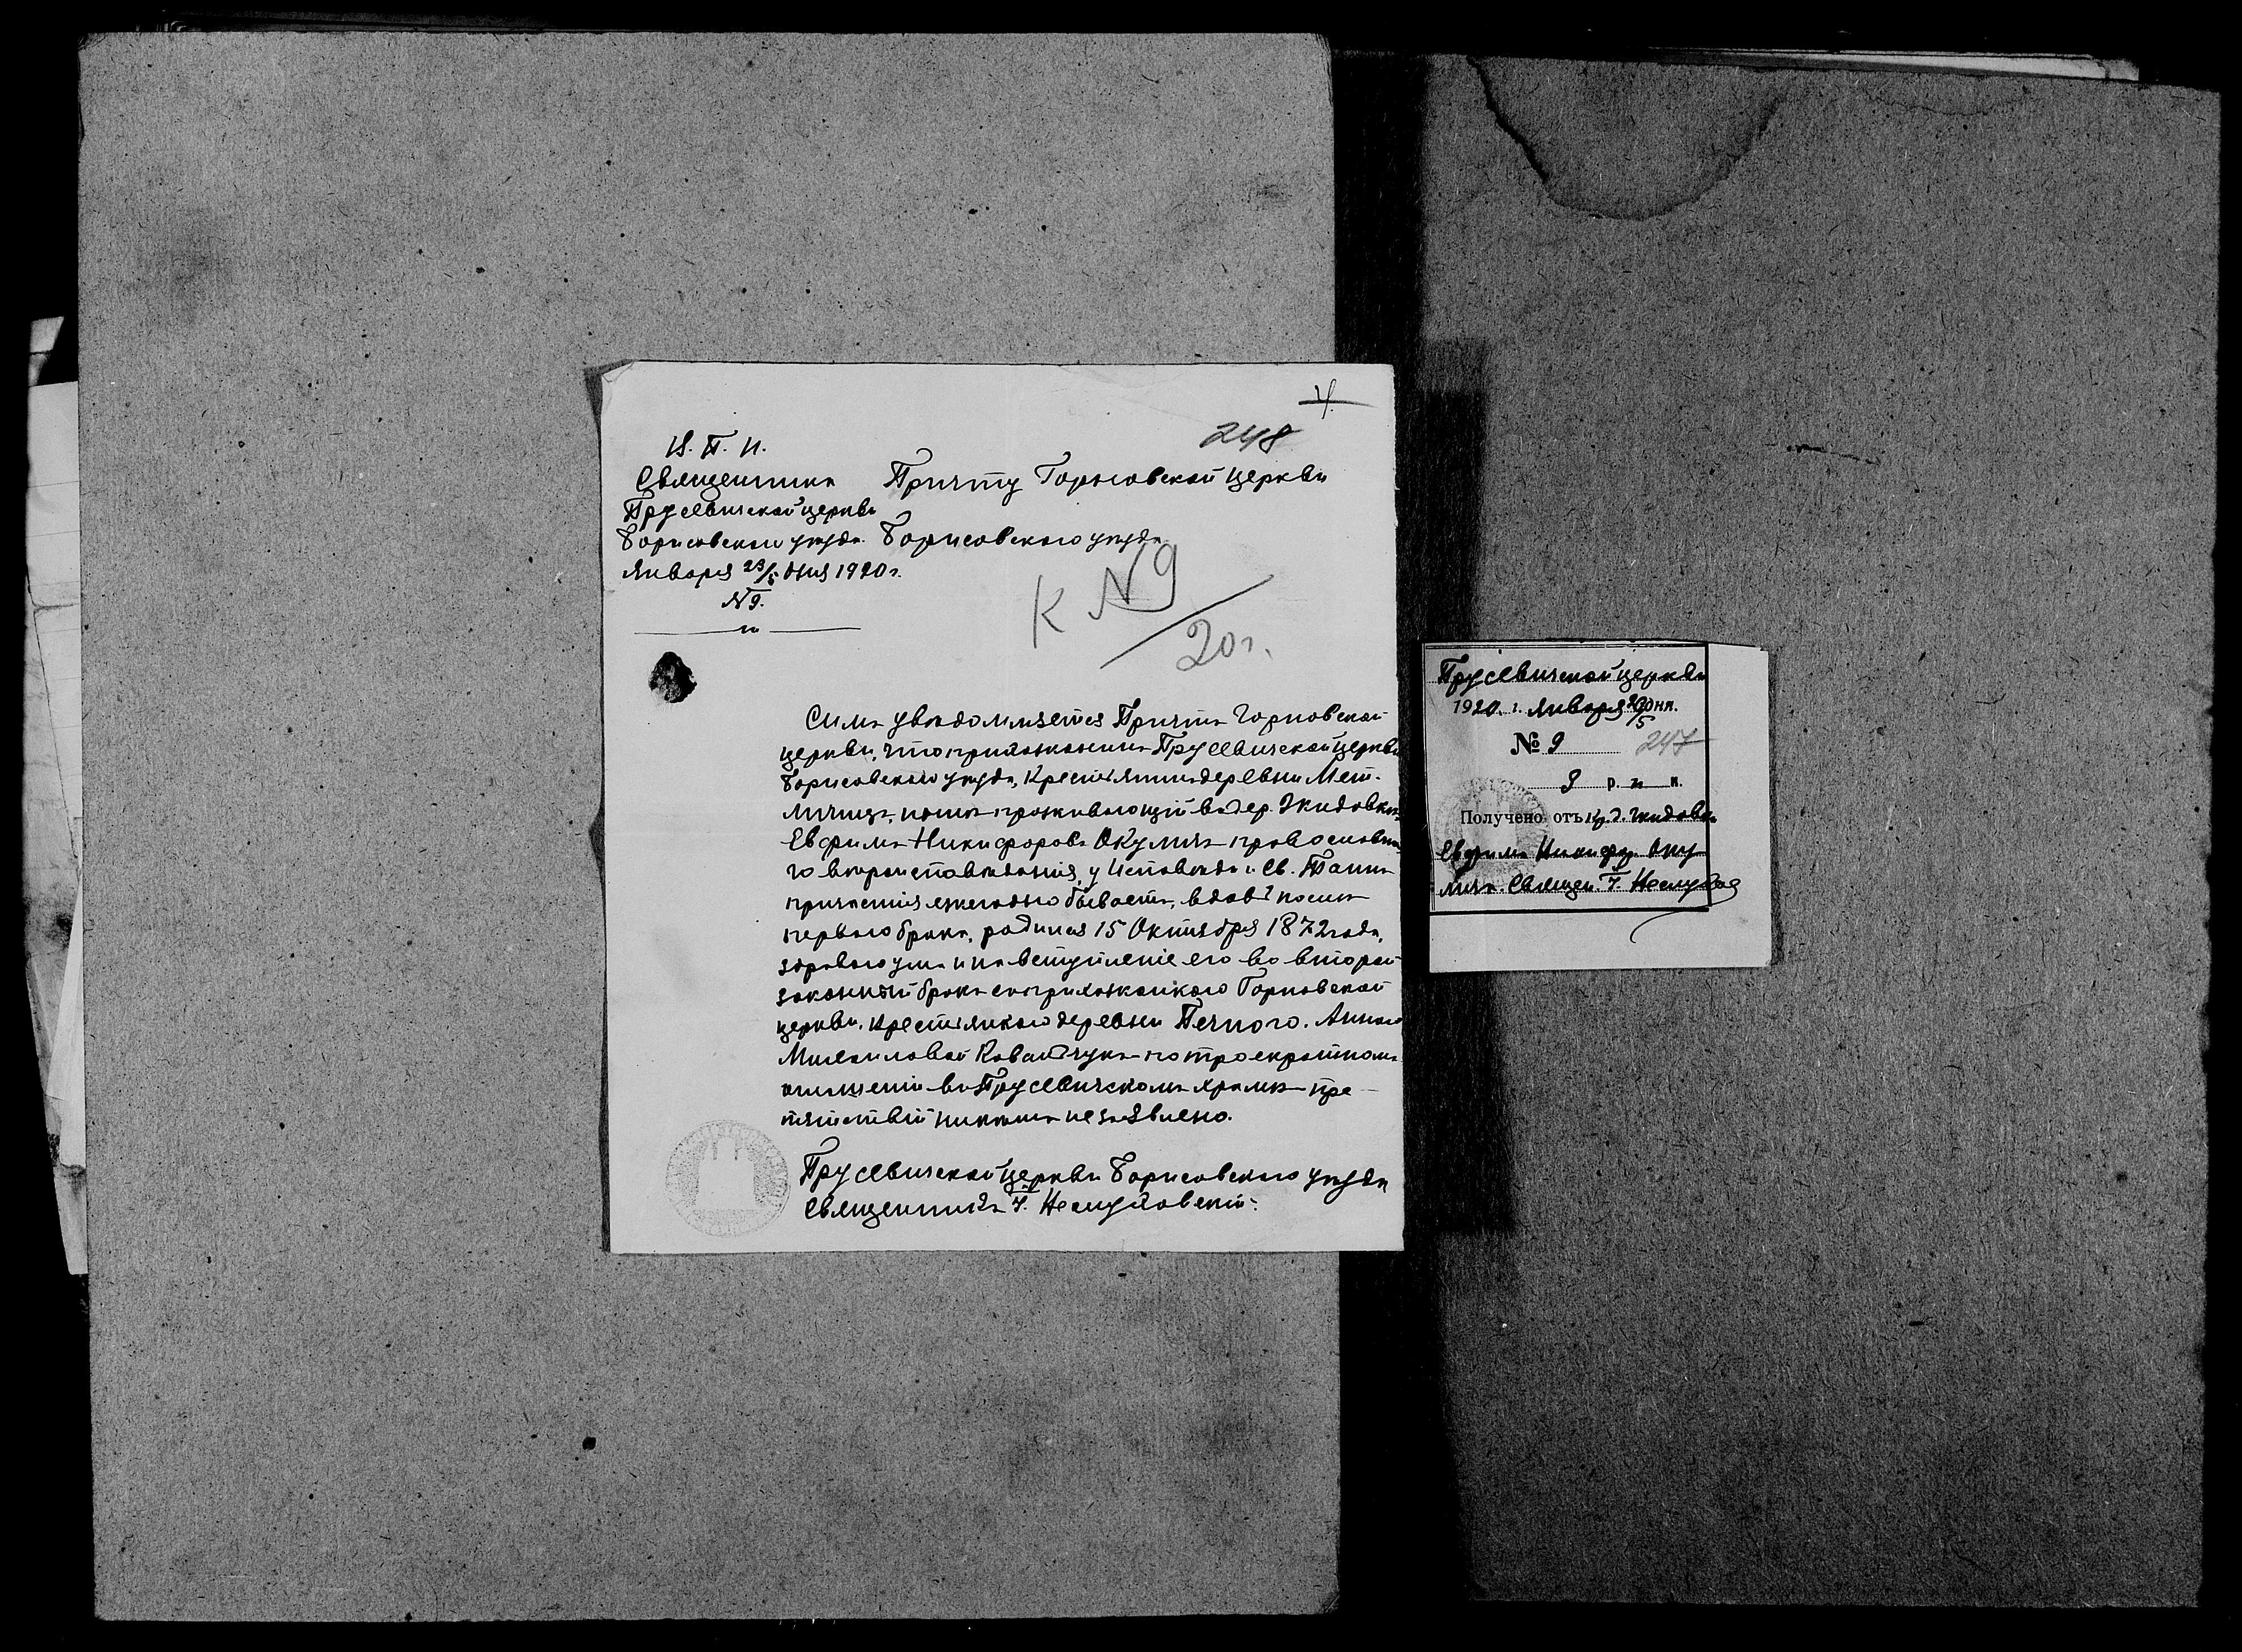 4.
248
В. П. И.
Священника
Прусевичской церкви
Борисовскаго уѣзда
Января 23/5 дня 1920 г.
№ 9.
Причту Горновской церкви
Борисовскаго уѣзда
К № 9/20 г.
Симъ увѣдомляется Причтъ Горновской
церкви, что прихожанинъ Прусевичской церкви
Борисовскаго уѣзда, крестьянинъ деревни Мет-
личица, нынѣ проживающій въ дер. Жидовкѣ
Евфимъ Никифоровъ Окуличъ православна-
го вѣроисповѣданія, у Исповѣди и Св. Таинъ
причастія ежегодно бываетъ, вдовъ послѣ
перваго брака, родился 15 Октября 1872 года,
здраваго ума и на вступленіе его во второй
законный бракъ съ прихожанкою Горновской
церкви, крестьянкою деревни Печного, Анною
Михаиловой Ковальчукъ по троекратномъ
оглашеніи въ Прусевичскомъ храмѣ пре-
пятствій никѣмъ не заявлено.
Прусевичской церкви Борисовскаго уѣзда
Священникъ І. Неслуховскій.
Прусевичской церкви
1920 г. Января дня.
№ 9
247
9 р. к.
Получено отъ кр. д. Жидовки
Евфима Никифор. Оку-
лича. Священ. І. Неслухов